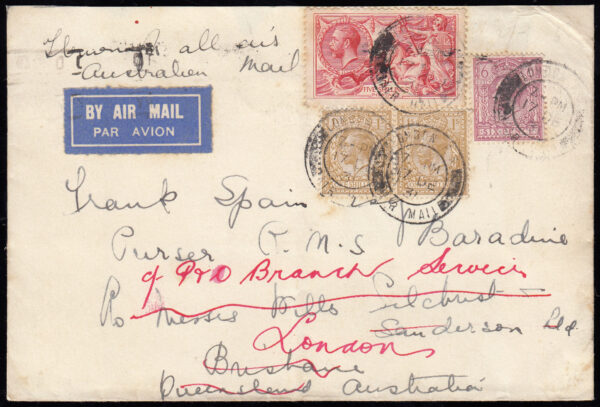 all air
Mail
-Australian
BY AIR MAIL
PAR AVION
FIVE
6
SIX
LONDON
AIR MAIL
Frank Spain
Purser R.M.S Baradine
c/o P&O Branch Service
c/o Messrs Wills Gilchrist
Sanderson Ltd.
London
Brisbane
Queensland Australia